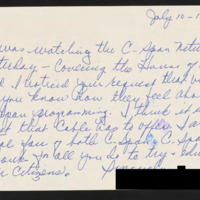 July 10-1
was watching the C-Span Netw
day - Covering the House of
I noticed your request that
you know how they feel abo
span programming. I think it
st that Cable has to offer. I a
of both C-Span & C-Spa
for all you do to try & edu
Citizens.